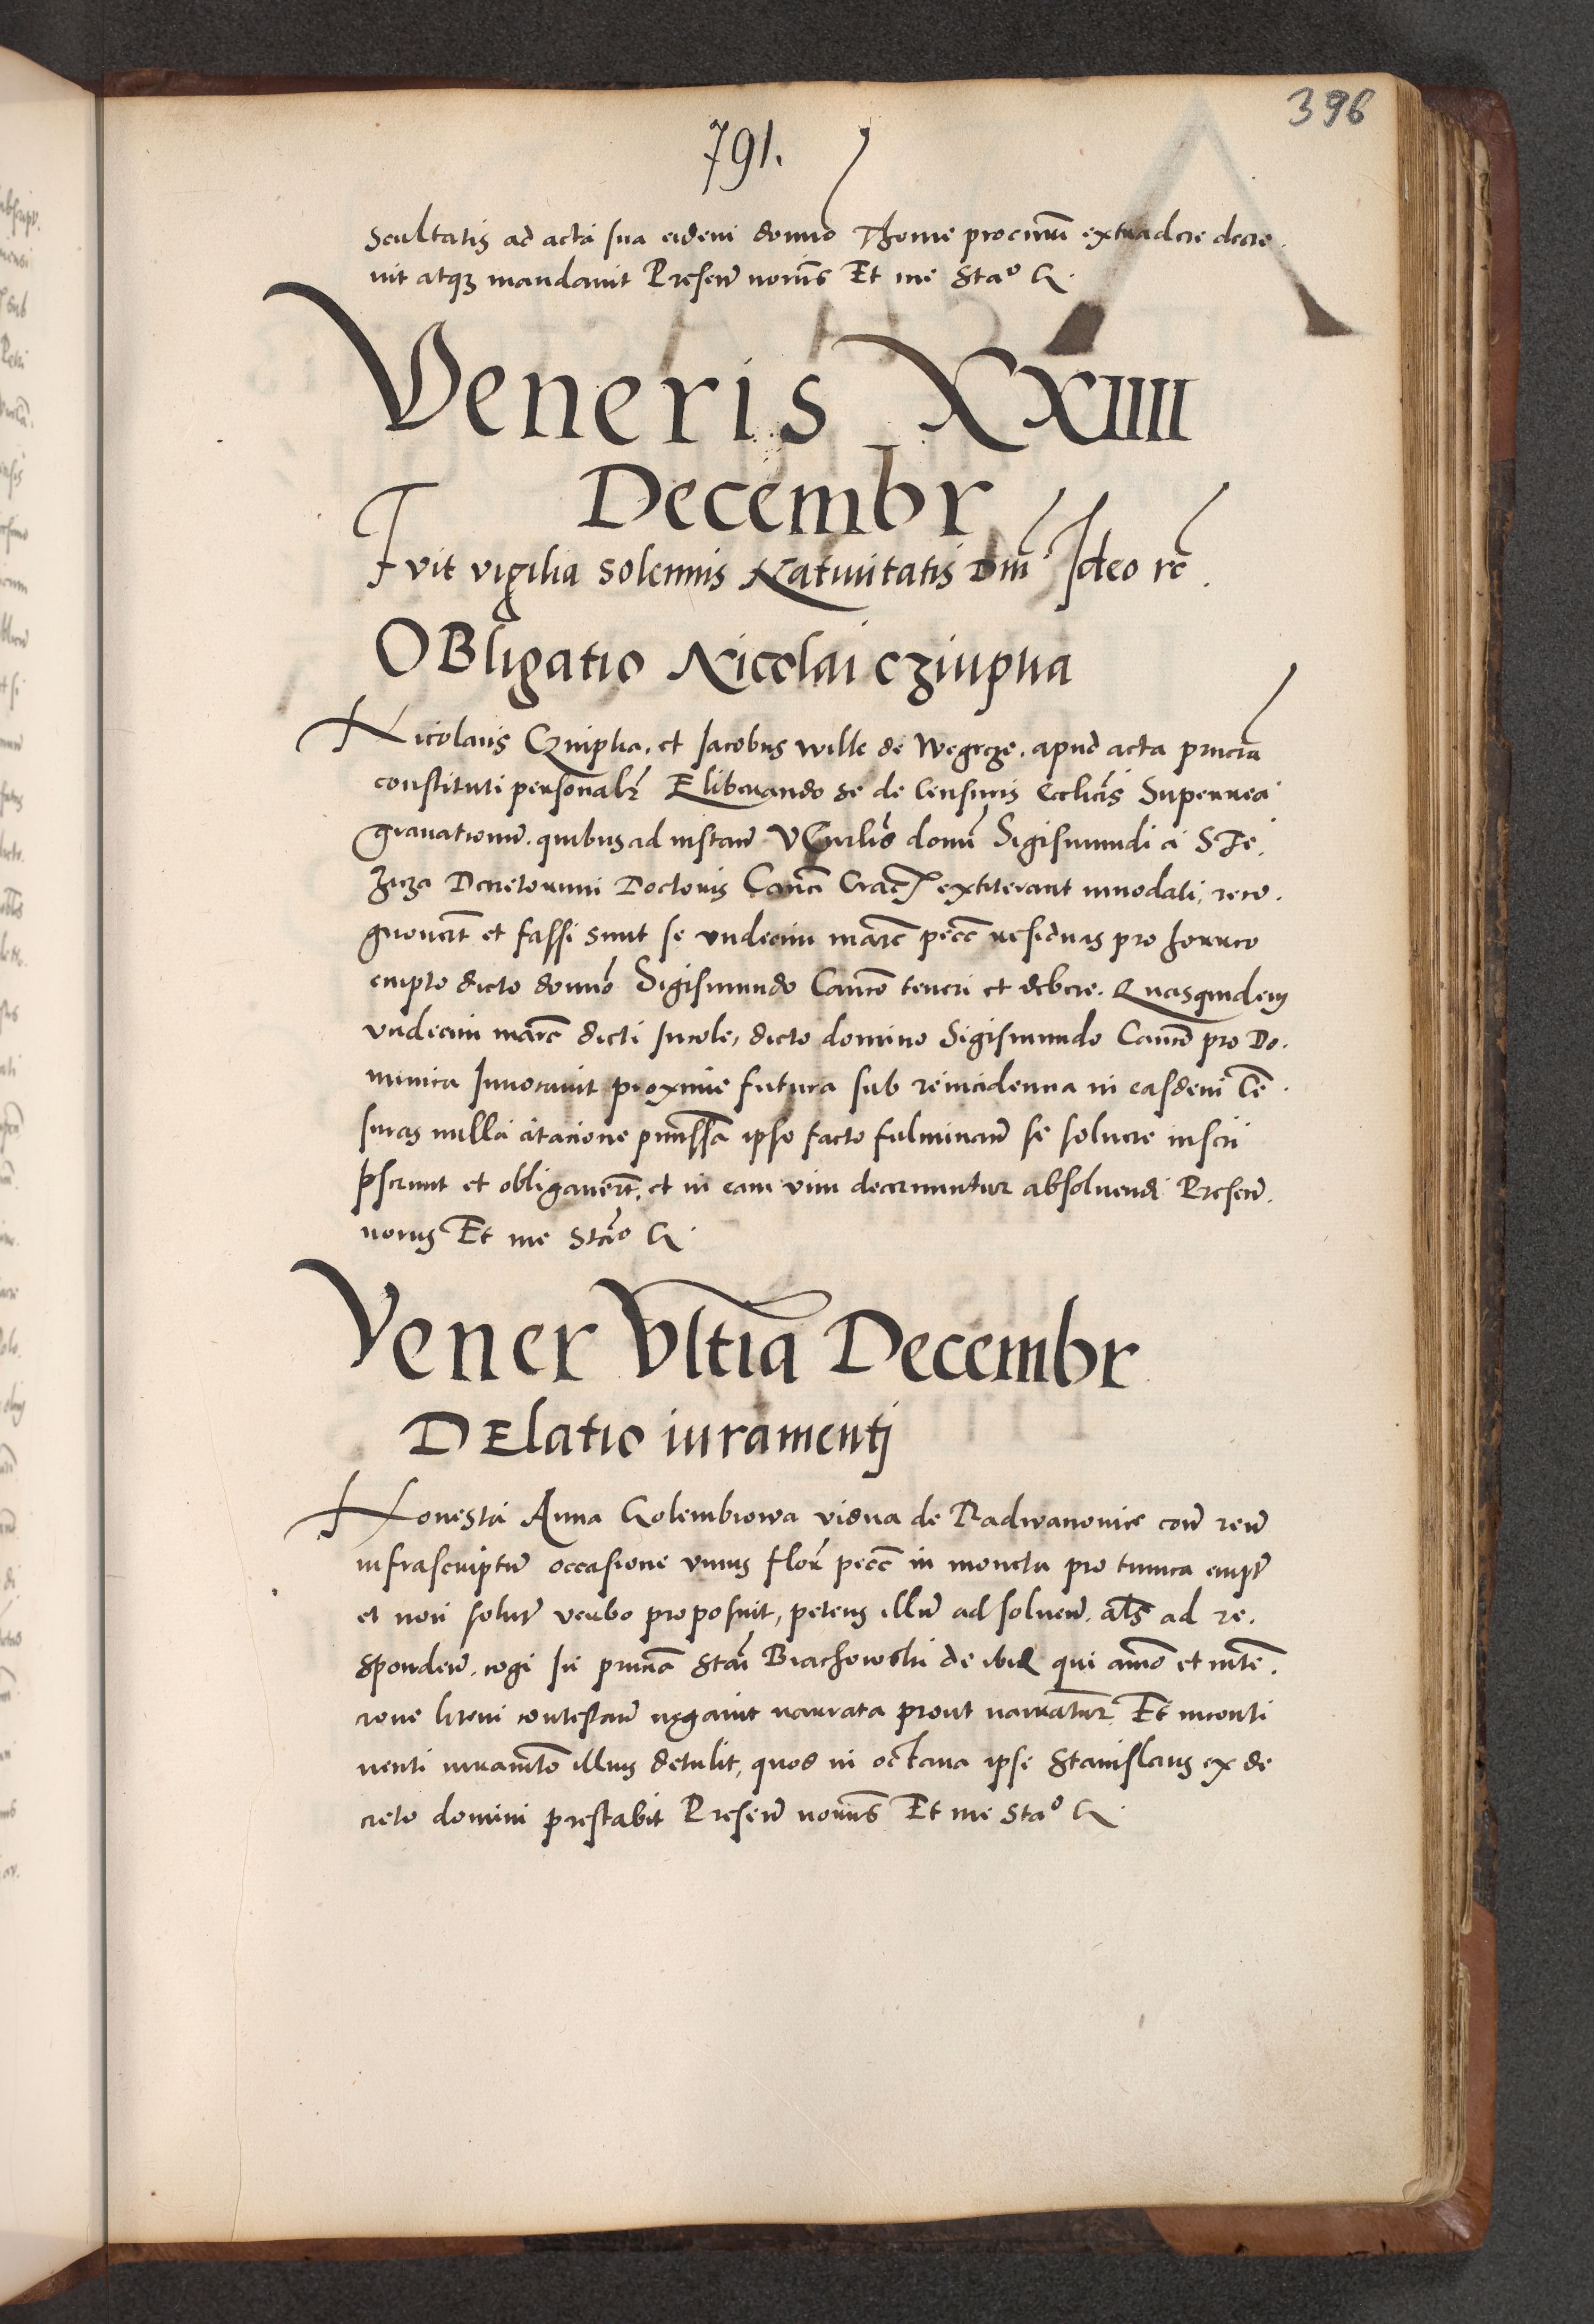 396
791.
scultatis ad acta sua eidem domino Thome procuratori extradere decre
vit atq3 mandavit Presen nonis Et me Stao G.
Veneris XXIIII
Decembr
Fvit vigilia solennis Nativitatis Dni Ideo rc.
OBligatio Nicolai cziupka
Nicolaus Cziupka, et Jacobus Wille de Wegrcze. apud acta pncia
constituti personalr Eliberando se de Censuris Ecclicis Superrea
gravationum. quibus ad instan domi Sigismundi a S Ste.
zicza Decretorum Doctoris Canci Crac extiterant innodati, reco.
gnovert et fassi sunt se undecim marc pecc residuas pro horreo
empto dicto domno Sigismundo Canco teneri et debere. Quasquidem
undecim marc dicti Incole, dicto domino Sigismundo Canco pro Do.
minica Invocavit proxime futura sub reincidenna in easdem Ce
suras nulla citacione pmissa ipso facto fulminan se solvere inscri
pserunt et obligavert, et in eam vim decernuntur absolvendi Presen.
nonis Et me Stao G.
Vener Vltia Decembr
DElatio iuramentj
Honesta Anna Golembiowa vidua de Radwanowice con reu
infrascriptum occasione unius flor pecc in moneta pro tunica empt
et non solut verbo proposuit, petens illu ad solven. als ad re.
sponden. cogi In pncia Stai Biachowski de ibid qui aio et inte.
cione litem contestan negavit narrata prout narratur Et inconti
nenti iuramto illius detulit, quod in octava ipse Stanislaus ex de
creto domini prestabit Presen nonis Et me Stao G.